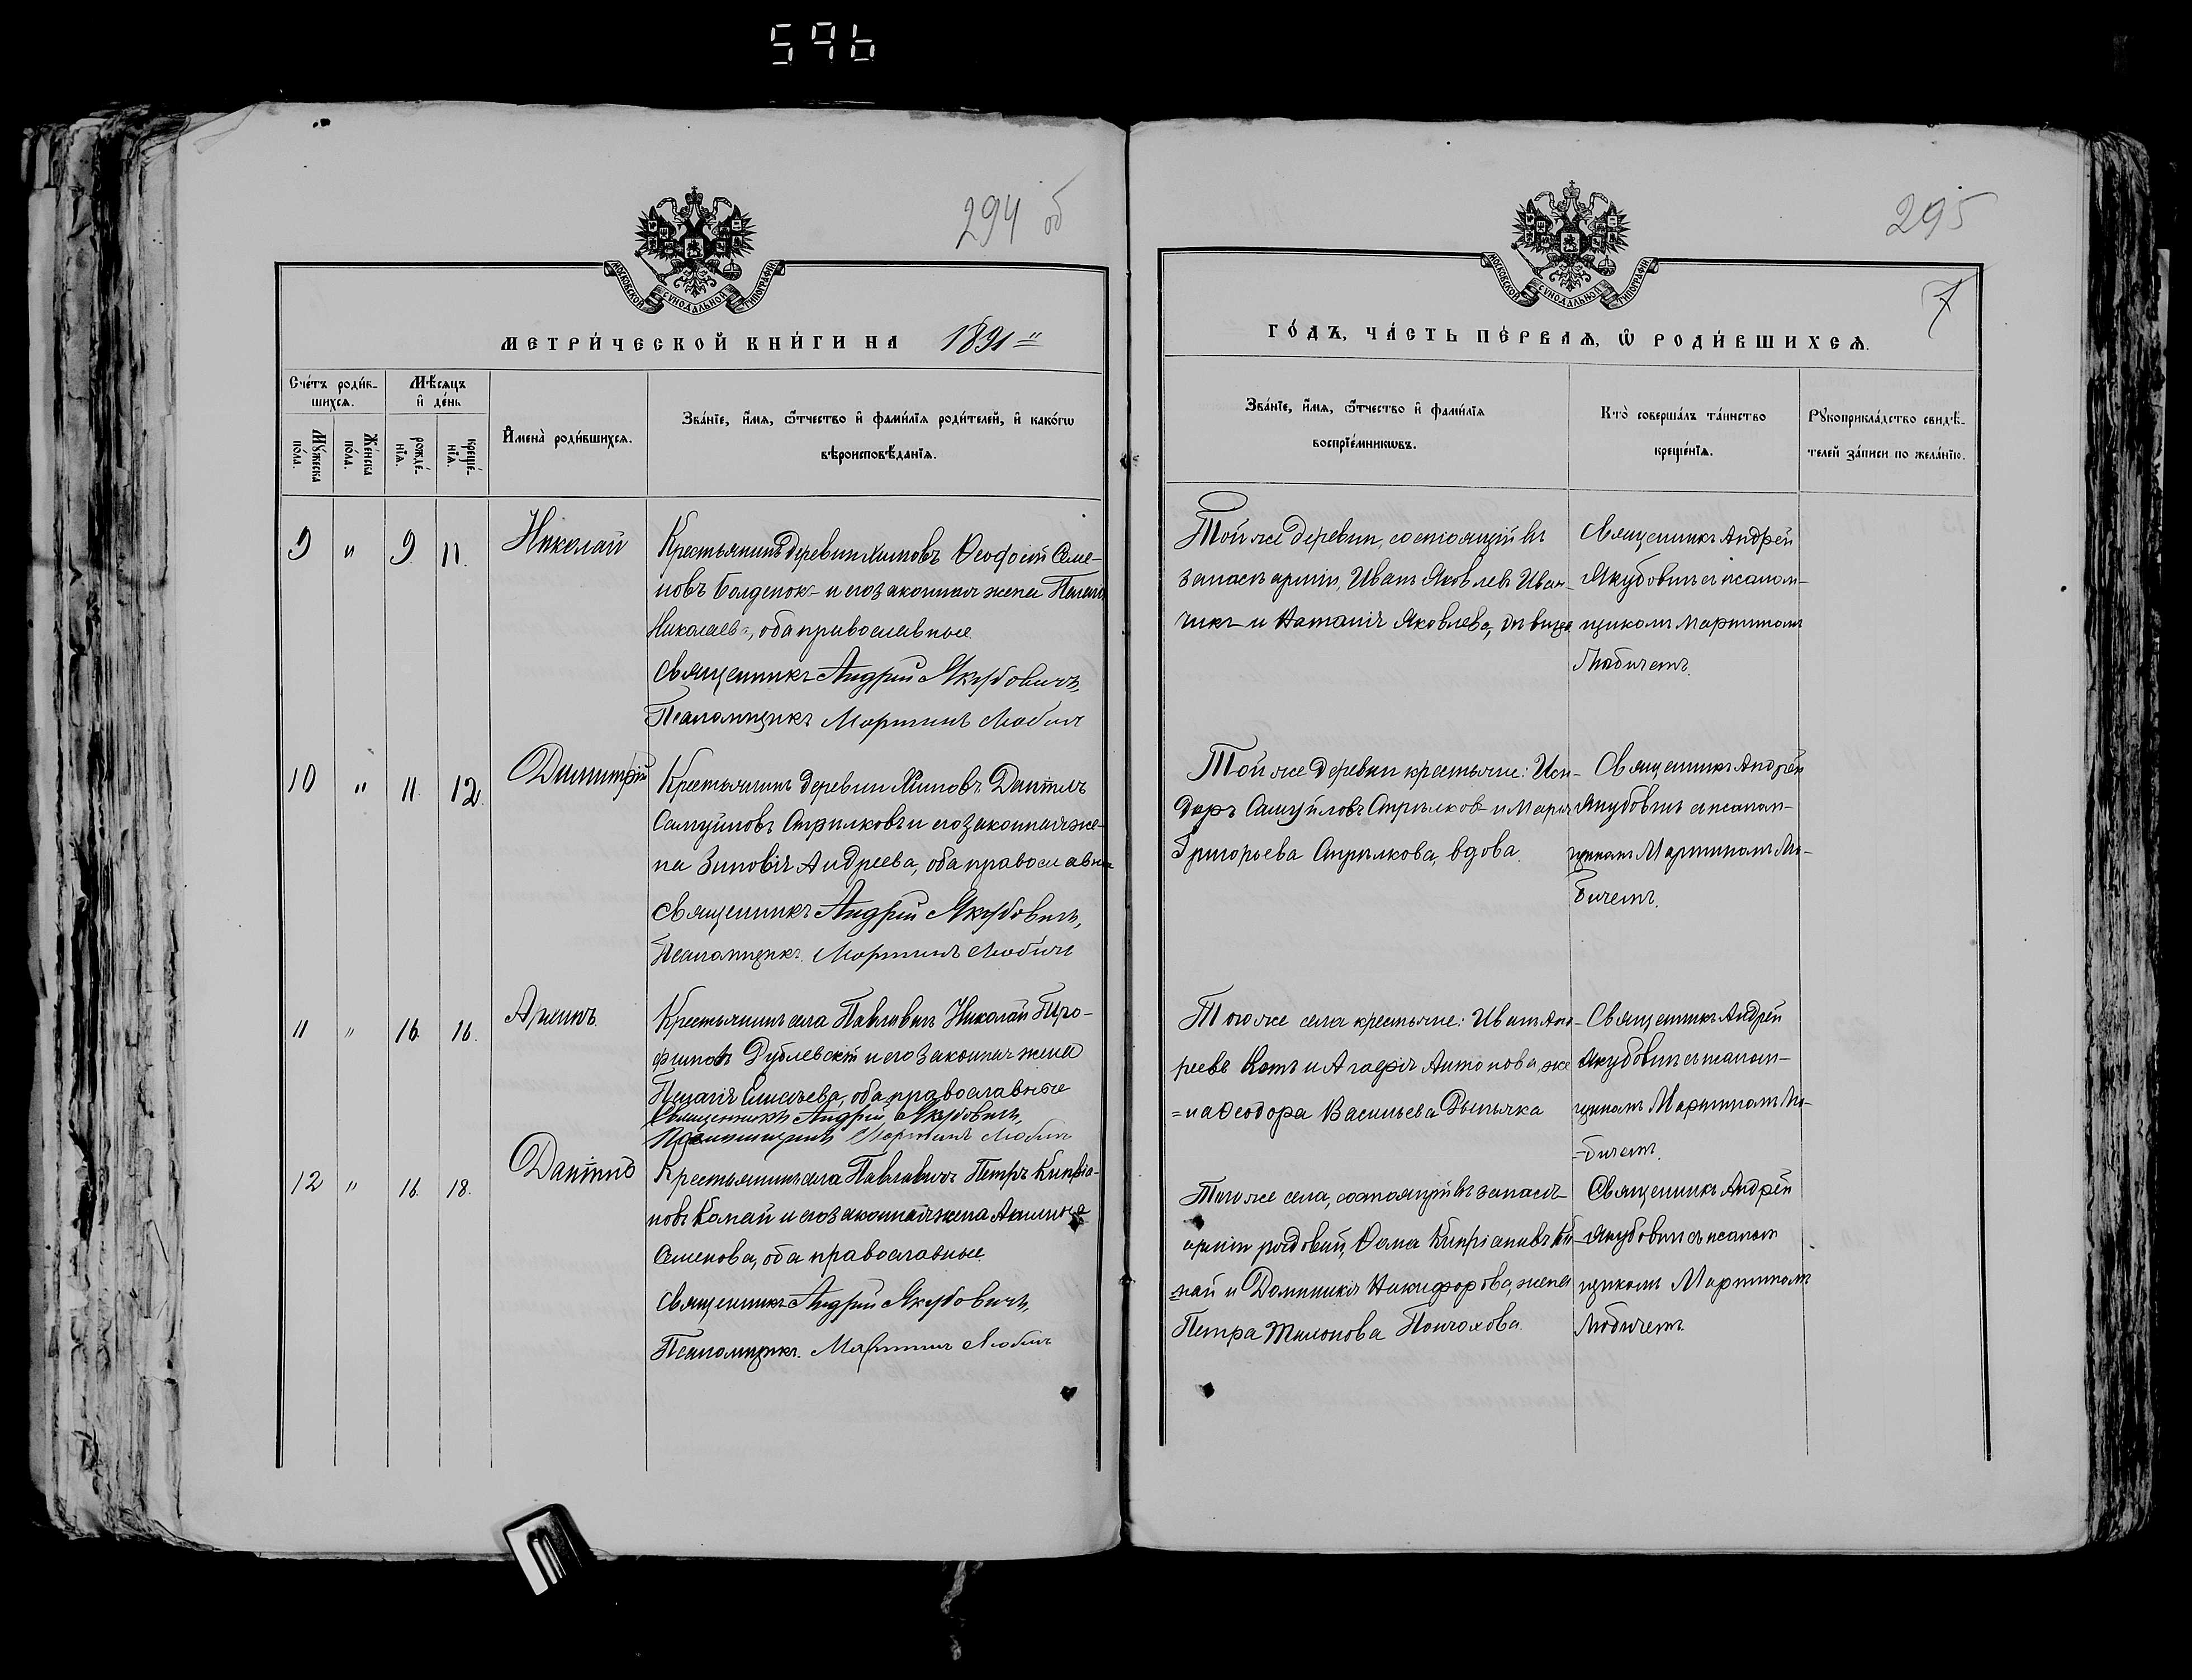 596
294 об
МОСКОВСКОЙ СУНОДАЛЬНОЙ ТИПОГРАФІИ
МЕТРИ́ЧЕСКОЙ КНИ́ГИ НА 1891
Сче́тъ роди́в-
шихсѧ.
Мѣ́сѧцъ
и҆ де́нь
Мꙋ́жеска
по́ла.
Же́нска
по́ла.
рожде́-
нїѧ.
креще́-
нїѧ.
И҆мена̀ роди́вшихсѧ.
Зва́нїе, и҆́мѧ, ѻ҆́тчество и҆ фами́лїѧ роди́телей, и҆ како́гѡ
вѣроисповѣ́данїѧ.
9 " 9. 11.
Николай
Крестьянинъ деревни Хиновъ Ѳеофосій Семе-
новъ Болденок и его законная жена
Николаева, оба православные.
Священникъ Андрій Якубовичъ,
Псаломщикъ Мартинъ Любичъ
10 " 11. 12.
Димитрій
Крестьянинъ деревни Хиновъ Даніилъ
Самуиловъ Стрилковъ и его законная же-
на Зиновія Андреева, оба православн
Священникъ Андрій Якубовичъ,
Псаломщикъ. Мартинъ Любичъ
11 " 16. 16.
Крестьянинъ села Павлавичъ Николай Тро-
фимовъ Дублевскій и его законная жена
Пелагія Елисеева, оба православные
Священникъ Андрій Якубовичъ,
Псаломщикъ Мартинъ Любичъ
12 " 16. 18.
Даніилъ
Крестьянинъ села Павлавичъ Петръ Кипріа-
новъ Комай и его законная жена Акилина
Семенова, оба православные.
Священникъ Андрій Якубовичъ,
Псаломщикъ. Мартинъ Любичъ
295
7
МОСКОВСКОЙ СУНОДАЛЬНОЙ ТИПОГРАФІИ
ГО́ДЪ, ЧА́СТЬ ПЕ́РВАѦ, Ѡ҆ РОДИ́ВШИХСѦ.
Зва́нїе, и҆́мѧ, ѻ҆́тчество и҆ фами́лїѧ
воспрїе́мникѡвъ.
Кто̀ соверша́лъ та́инство
креще́нїѧ.
Рꙋкоприкла́дство свидѣ́-
телей за́писи по жела́нїю.
Той же деревни, состоящій въ
запасѣ арміи, Иванъ Яковлевъ Иван-
чикъ и Наталія Яковлева, дѣвица
Священникъ Андрей
Якубовичъ съ псалом-
щикомъ Мартиномъ
Любичемъ.
Той же деревни крестьяне: Иси-
доръ Самуиловъ Стрилков и Марія
Григорьева Стрилкова, вдова.
Священникъ Андрей
Якубовичъ съ псалом-
щикомъ Мартиномъ Лю-
бичемъ.
Того же села крестьяне: Иванъ Анд-
реевъ Котъ и Агафія Антонова, же
=на Ѳеодора Васильева
Священникъ Андрей
Якубовичъ съ псалом-
щикомъ Мартиномъ Лю-
=бичемъ.
Того же села, состоящій въ запасѣ
арміи рядовий, Ѳома Кипріановъ Ко-
май и Доминикія Никифорова, жена
Петра
Священникъ Андрей
Якубовичъ съ псалом
щикомъ Мартиномъ
Любичемъ.